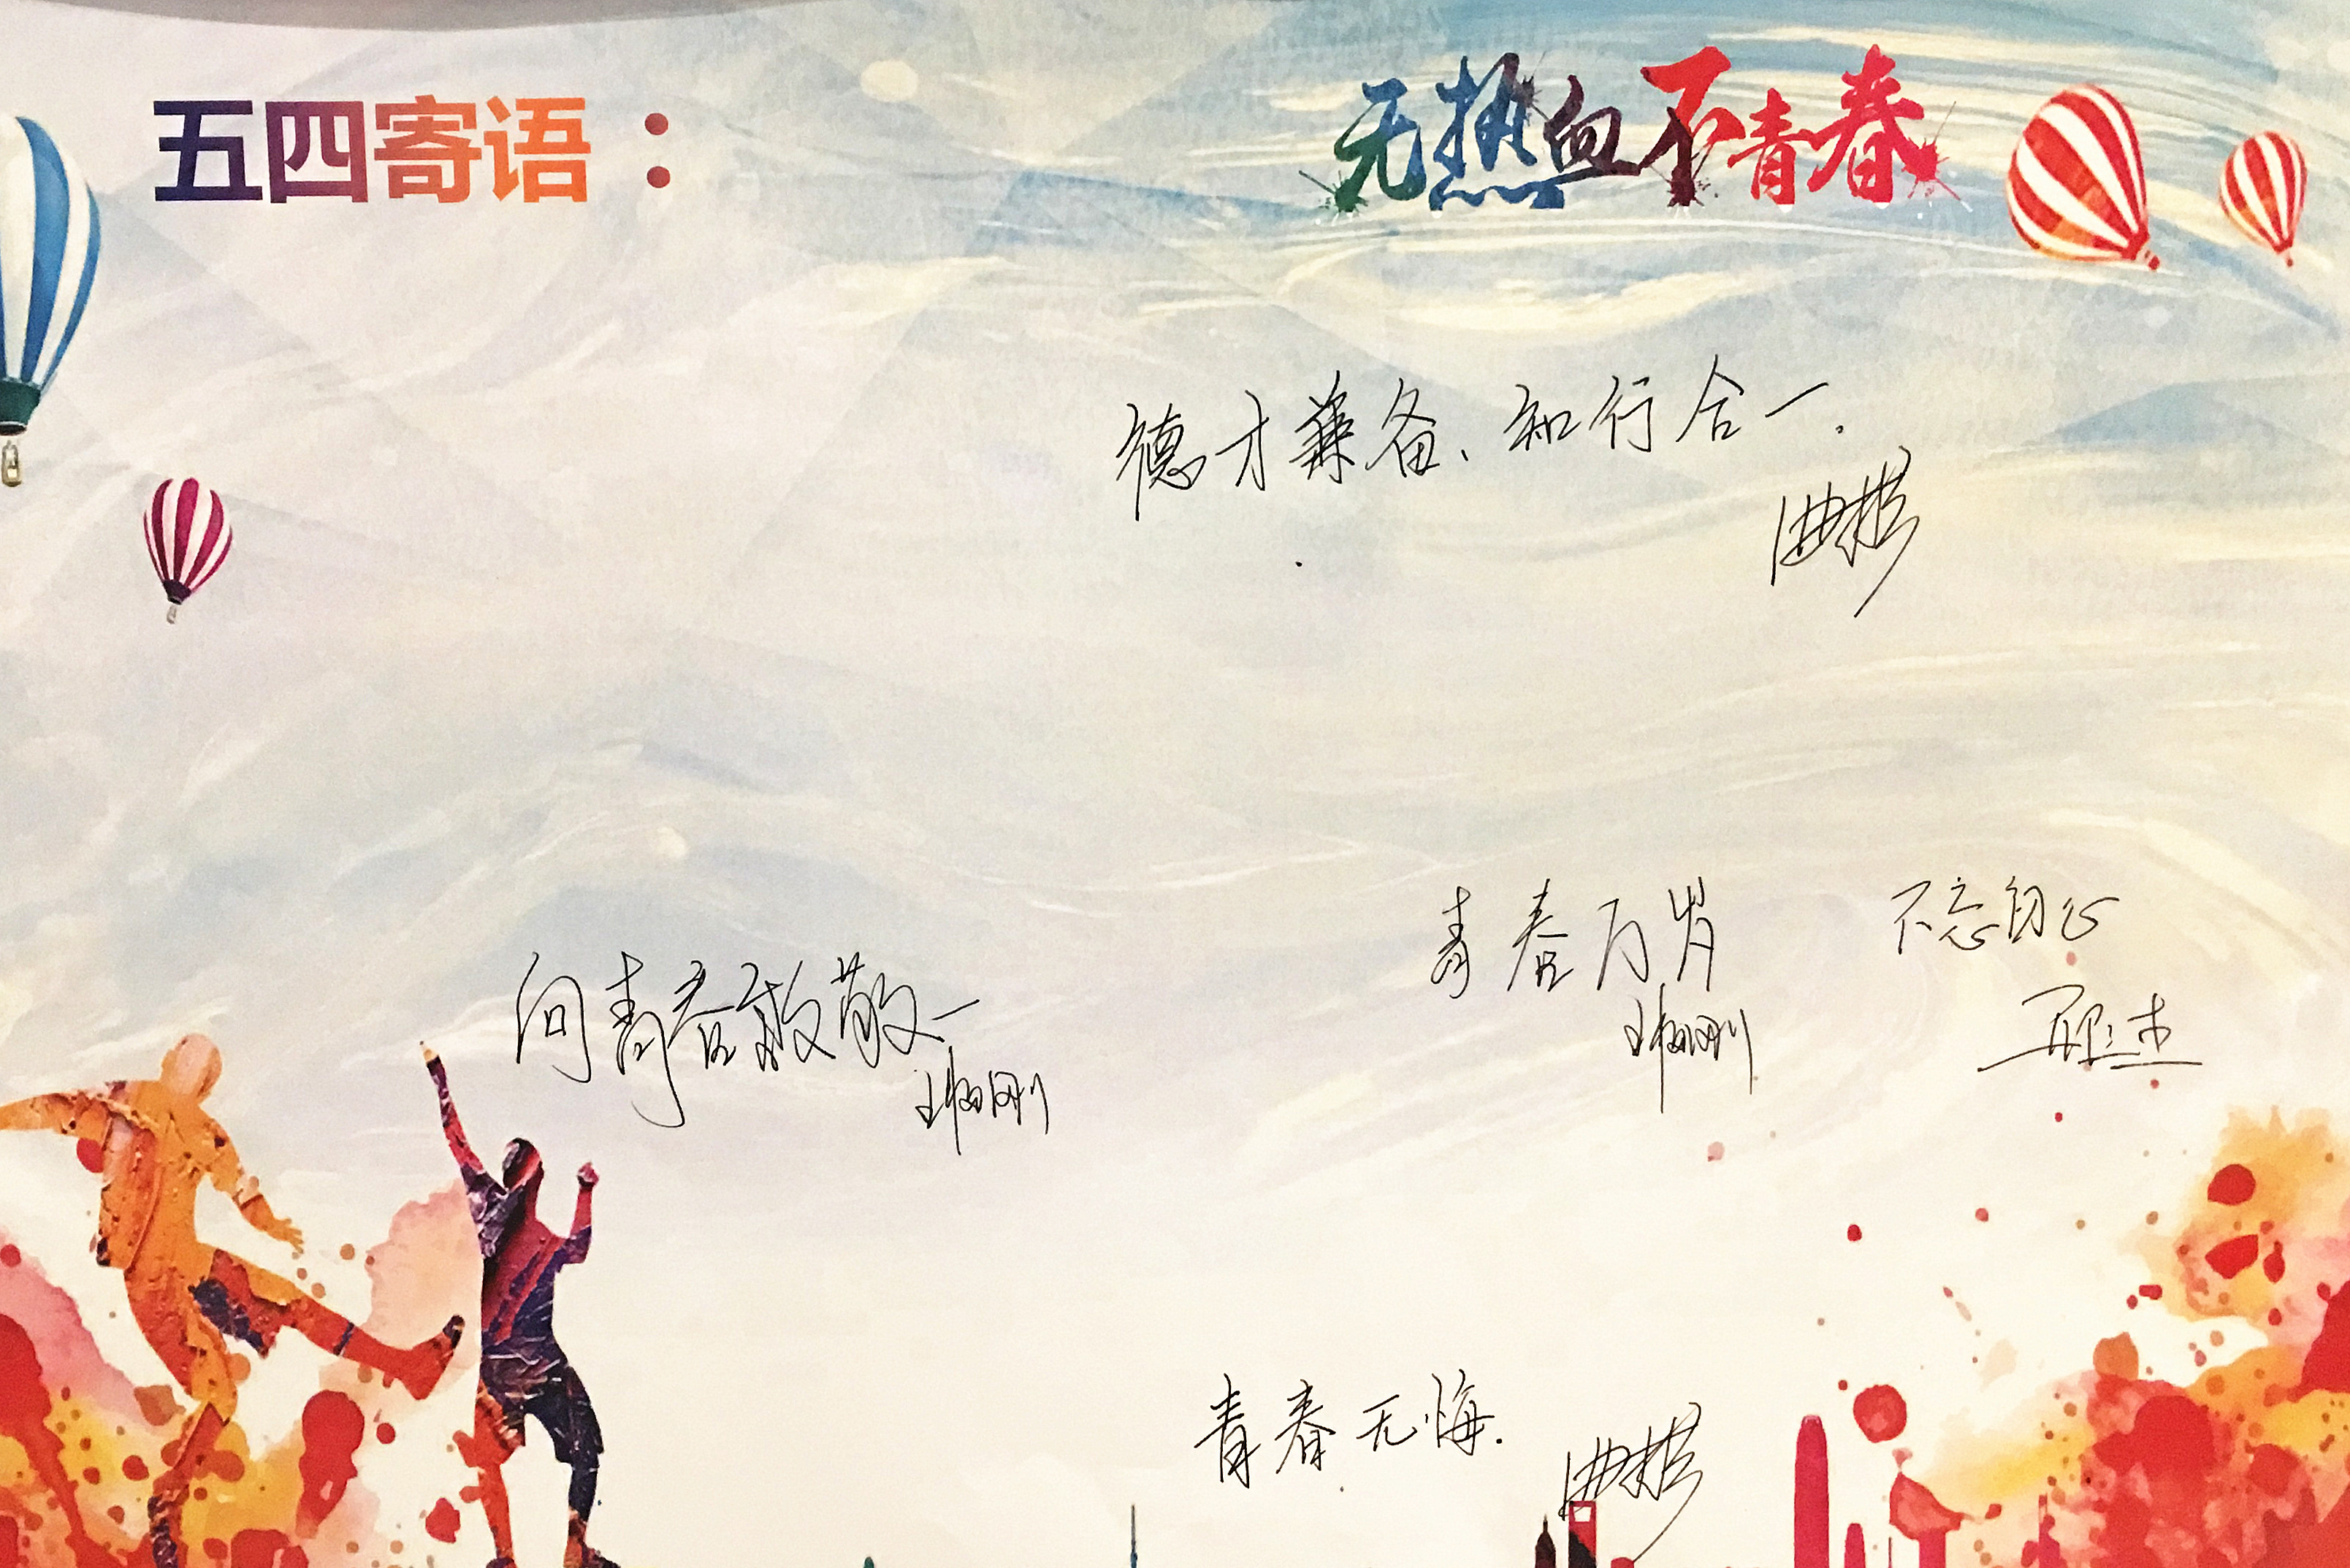 五四寄语：
无热血不青春
德才兼备、知行合一.
青春万岁
不忘初心
向青春致敬
青春无悔.